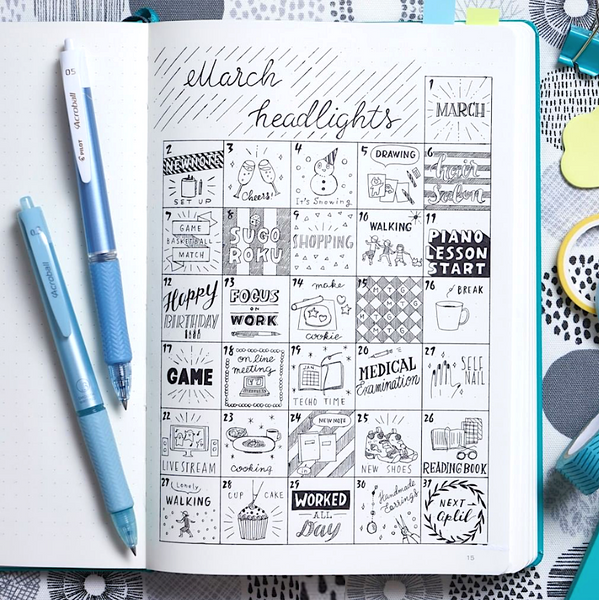 March
headlights
1
MARCH
2
SET UP
3
Cheers!
4
It's Snowing
5
DRAWING
6
hair
Salon
7
GAME
BASKETBALL
MATCH
8
SUGO
ROKU
9
SHOPPING
10
WALKING
11
PIANO
LESSON
START
12
Happy
BIRTHDAY
13
FOCUS
on
WORK
14
make
cookie
15
MTG
16
BREAK
17
GAME
18
online
meeting
19
TECHO TIME
20
MEDICAL
Examination
21
SELF
NAIL
22
LIVESTREAM
23
cooking
24
NEW NOTE
25
NEW SHOES
26
READING BOOK
27
Lonely
WALKING
28
CUP CAKE
29
WORKED
ALL
Day
30
Handmade
Earrings
31
NEXT
Aplil
15
05
Acroball
PILOT
Acroball